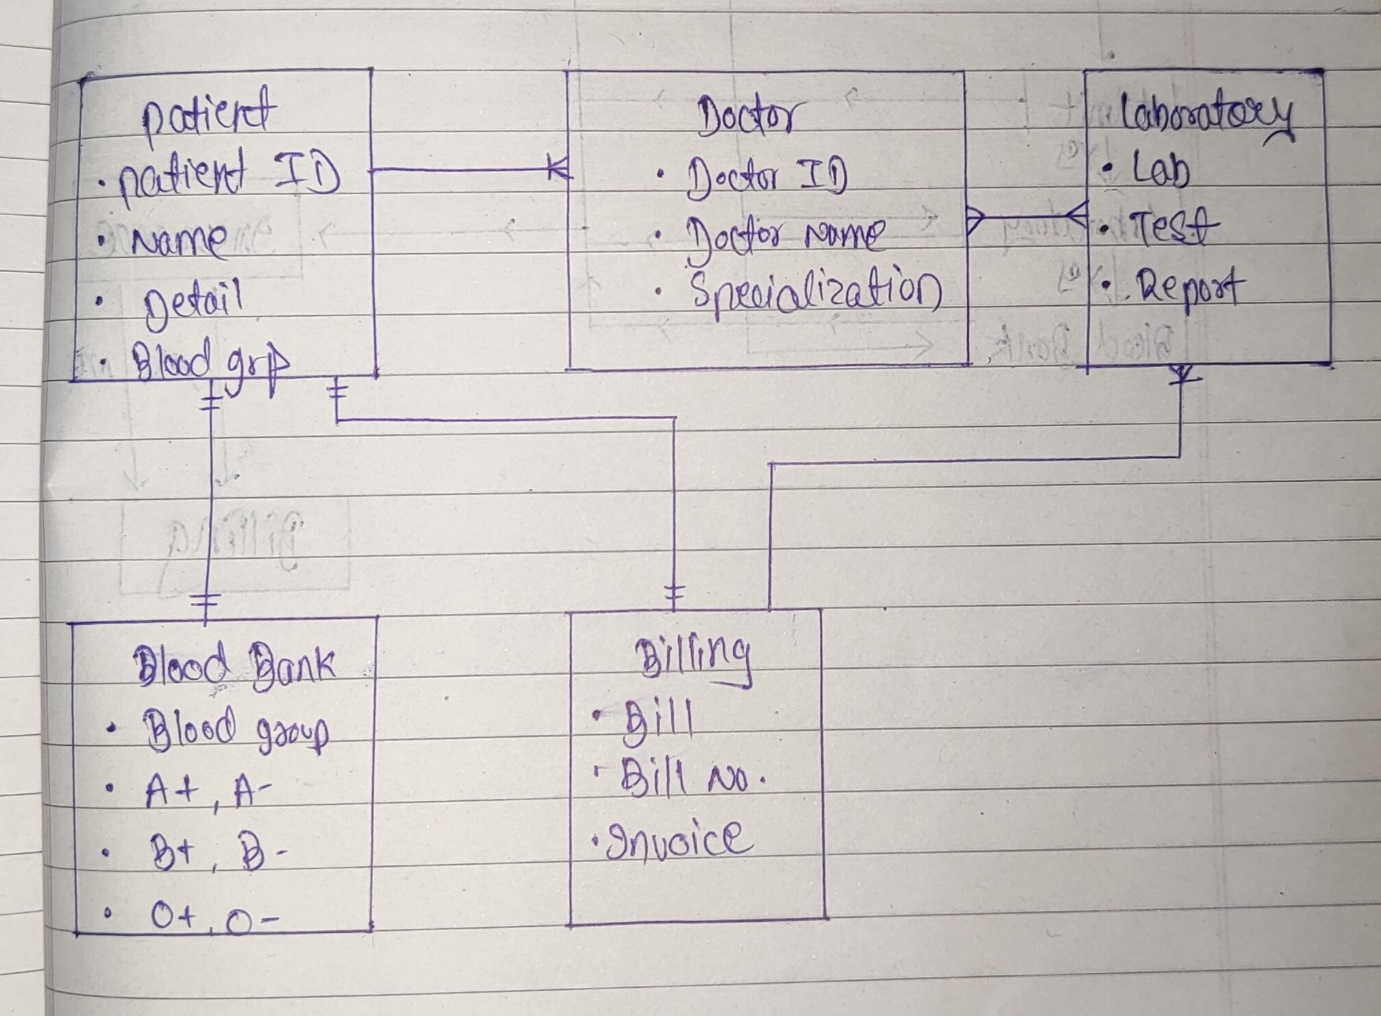 Patient
• Patient ID
• Name
• Detail
• Blood grp
Doctor
• Doctor ID
• Doctor Name
• Specialization
Laboratory
• Lab
• Test
• Report
Blood Bank
• Blood group
• A+, A-
• B+, B-
• O+, O-
Billing
• Bill
• Bill No.
• Invoice